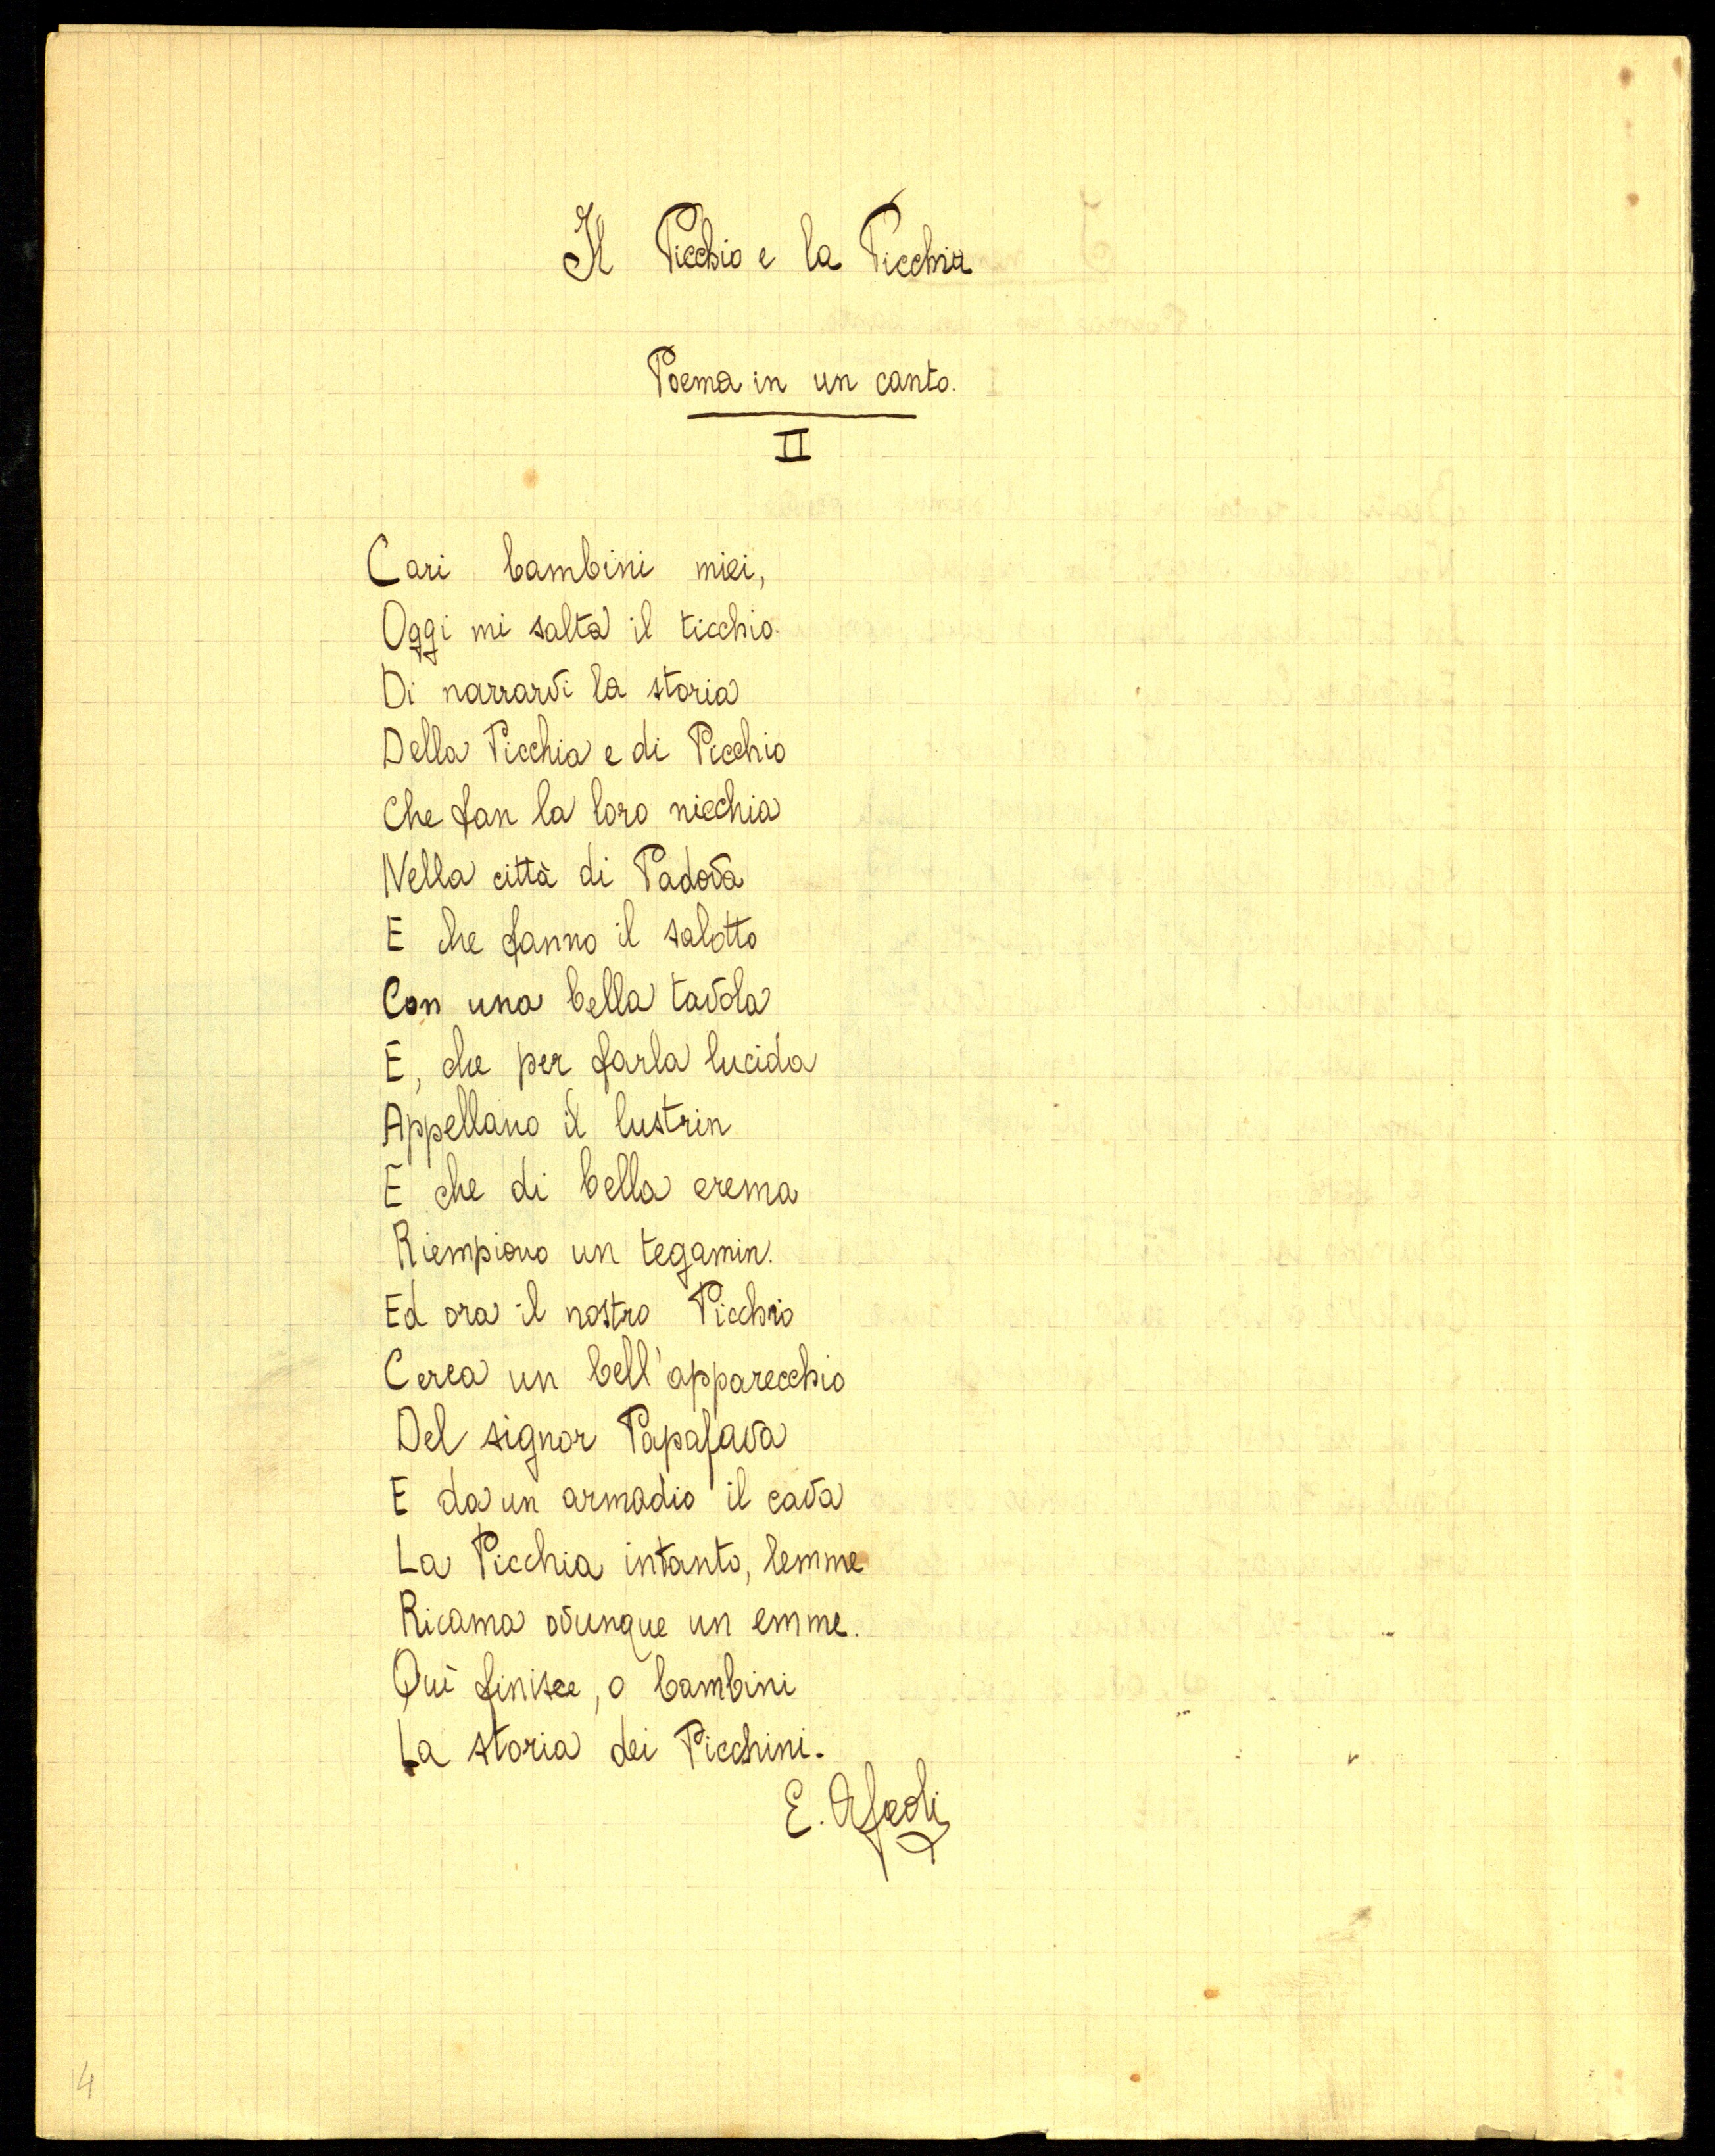 Il Picchio e la Picchia
Poema in un canto.
II
Cari bambini miei,
Oggi mi salta il ticchio
Di narrarvi la storia
Della Picchia e di Picchio
Che fan la loro nicchia
Nella città di Padova
E che fanno il salotto
Con una bella tavola
E, che per farla lucida
Appellano il lustrin
E che di bella crema
Riempiono un tegamin.
Ed ora il nostro Picchio
Cerca un bell'apparecchio
Del signor Papafava
E da un armadio il cava
La Picchia intanto, lemme
Ricama ovunque un emme.
Quì finisce, o bambini
La storia dei Picchini.
E.
4